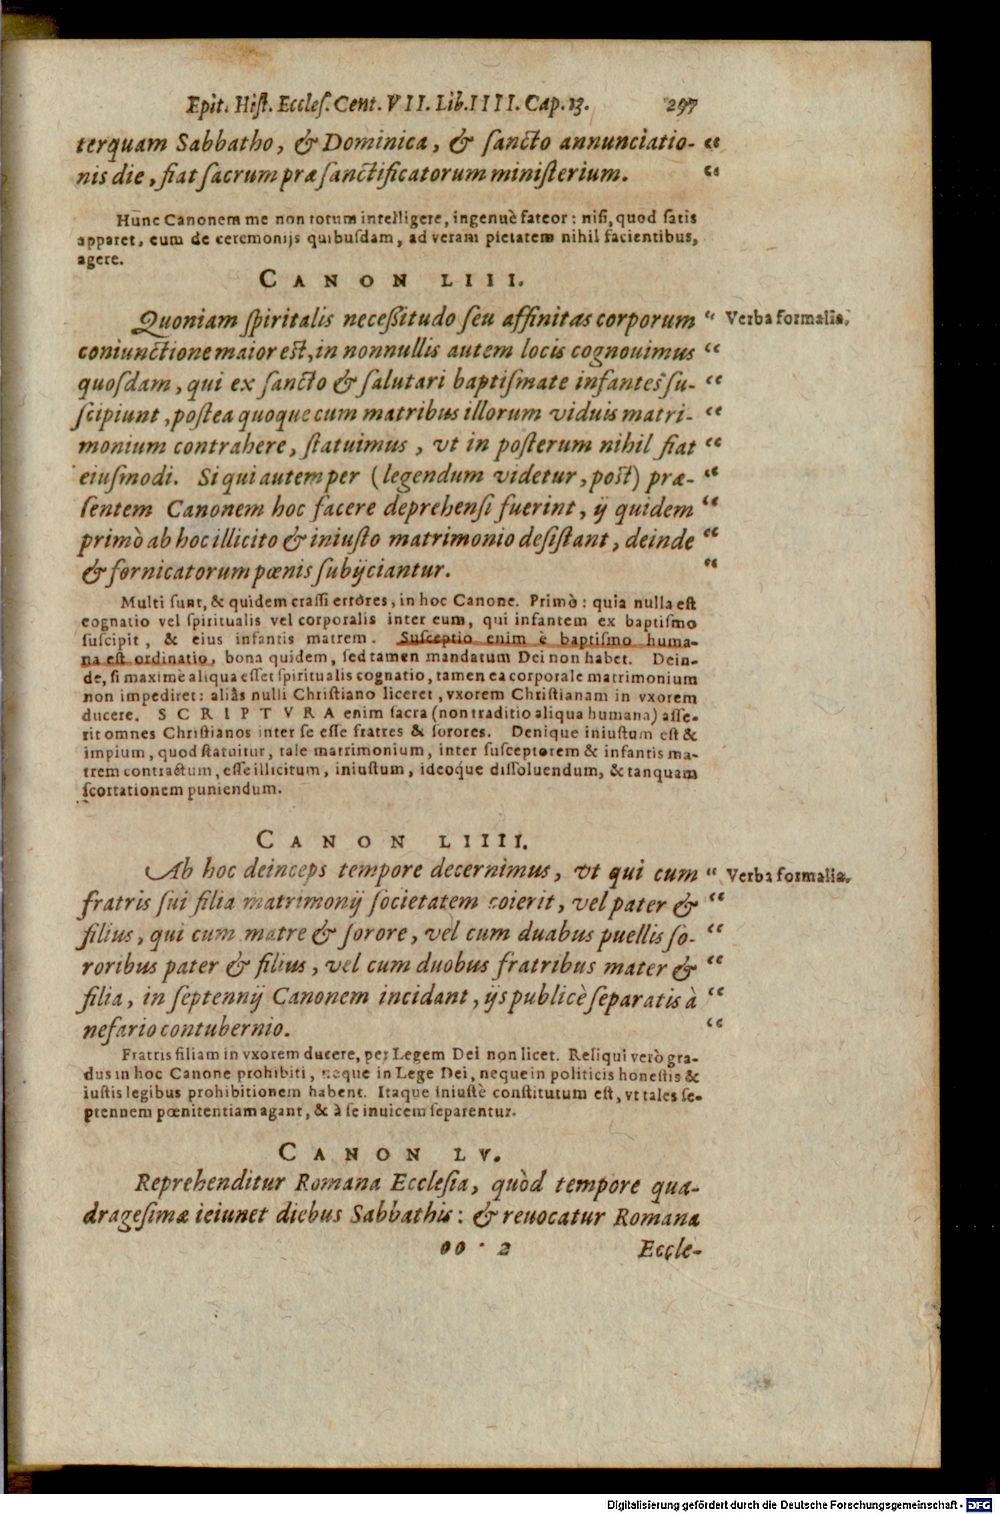 Epit. Hiſt. Eccleſ. Cent. VII. Lib. IIII. Cap. 13. 297
terquam Sabbatho, & Dominica, & ſancto annunciatio- “
nis die, fiat ſacrum præſanctificatorum miniſterium. “
Hunc Canonem me non totum intelligere, ingenuè fateor: niſi, quod ſatis
apparet, eum de ceremonijs quibuſdam, ad veram pietatem nihil facientibus,
agere.
CANON LIII.
Quoniam ſpiritalis neceßitudo ſeu affinitas corporum “ Verba formalia.
coniunctione maior eſt, in nonnullis autem locis cognouimus “
quoſdam, qui ex ſancto & ſalutari baptiſmate infantes ſu- “
ſcipiunt, poſtea quoque cum matribus illorum viduis matri- “
monium contrahere, ſtatuimus, vt in poſterum nihil fiat “
eiuſmodi. Si qui autem per (legendum videtur, poſt) præ- “
ſentem Canonem hoc facere deprehenſi fuerint, ij quidem “
primò ab hoc illicito & iniuſto matrimonio deſiſtant, deinde “
& fornicatorum pœnis ſubijciantur. “
Multi ſunt, & quidem craſſi errores, in hoc Canone. Primò: quia nulla eſt
cognatio vel ſpiritualis vel corporalis inter eum, qui infantem ex baptiſmo
ſuſcipit, & eius infantis matrem. Suſceptio enim è baptiſmo huma-
na eſt ordinatio, bona quidem, ſed tamen mandatum Dei non habet. Dein-
de, ſi maximè aliqua eſſet ſpiritualis cognatio, tamen ea corporale matrimonium
non impediret: aliâs nulli Chriſtiano liceret, vxorem Chriſtianam in vxorem
ducere. SCRIPTVRA enim ſacra (non traditio aliqua humana) aſſe-
rit omnes Chriſtianos inter ſe eſſe fratres & ſorores. Denique iniuſtum eſt &
impium, quod ſtatuitur, tale matrimonium, inter ſuſceptorem & infantis ma-
trem contractum, eſſe illicitum, iniuſtum, ideoque diſſoluendum, & tanquam
ſcortationem puniendum.
CANON LIIII.
Ab hoc deinceps tempore decernimus, vt qui cum “ Verba formalia.
fratris ſui filia matrimonij ſocietatem coierit, vel pater & “
filius, qui cum matre & ſorore, vel cum duabus puellis ſo- “
roribus pater & filius, vel cum duobus fratribus mater & “
filia, in ſeptennij Canonem incidant, ijs publicè ſeparatis à “
nefario contubernio. “
Fratris filiam in vxorem ducere, per Legem Dei non licet. Reliqui verò gra-
dus in hoc Canone prohibiti, neque in Lege Dei, neque in politicis honeſtis &
iuſtis legibus prohibitionem habent. Itaque iniuſtè conſtitutum eſt, vt tales ſe-
ptennem pœnitentiam agant, & à ſe inuicem ſeparentur.
CANON LV.
Reprehenditur Romana Eccleſia, quòd tempore qua-
drageſimæ ieiunet diebus Sabbathis: & reuocatur Romana
oo 2 Eccle-
Digitalisierung gefördert durch die Deutsche Forschungsgemeinschaft - DFG